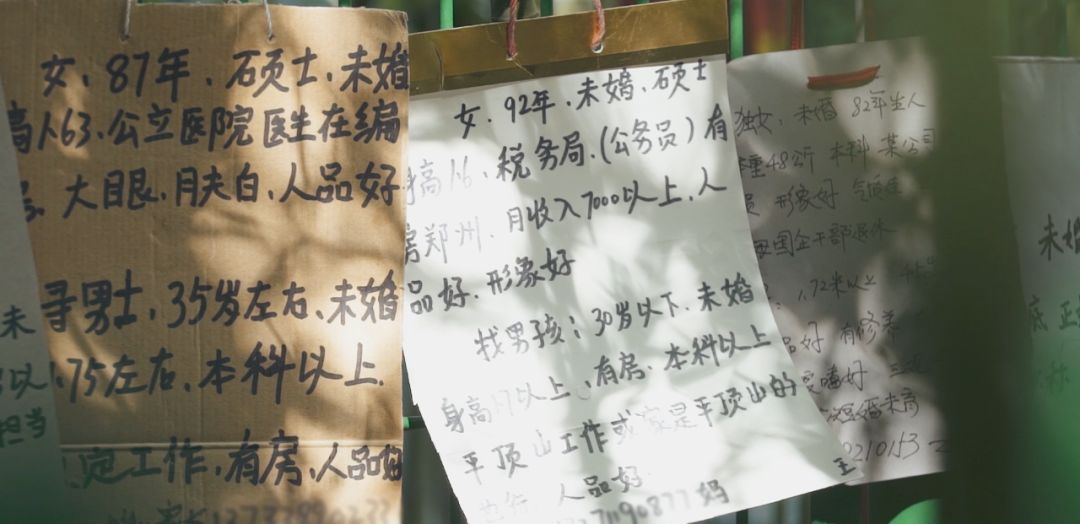 女、87年、硕士、未婚
高1.63、公立医院医生在编
大眼、肤白、人品好
寻男士，35岁左右、未婚
1.75左右、本科以上
定工作，有房、人品好
女、92年、未婚、硕士
身高1.6、税务局、(公务员)有
房郑州、月收入7000以上、人
品好、形象好
找男孩：30岁以下、未婚
身高1.7以上、有房、本科以上
平顶山工作或家是平顶山的
也行、人品好
妈
王
独女，未婚 82年生人
体重48公斤 本科 某公司
形象好 气质佳
母国企干部退休
1.72米以上
品好 有修养
嗜好
短婚未育
210153
未婚
底 正
未
以
担当